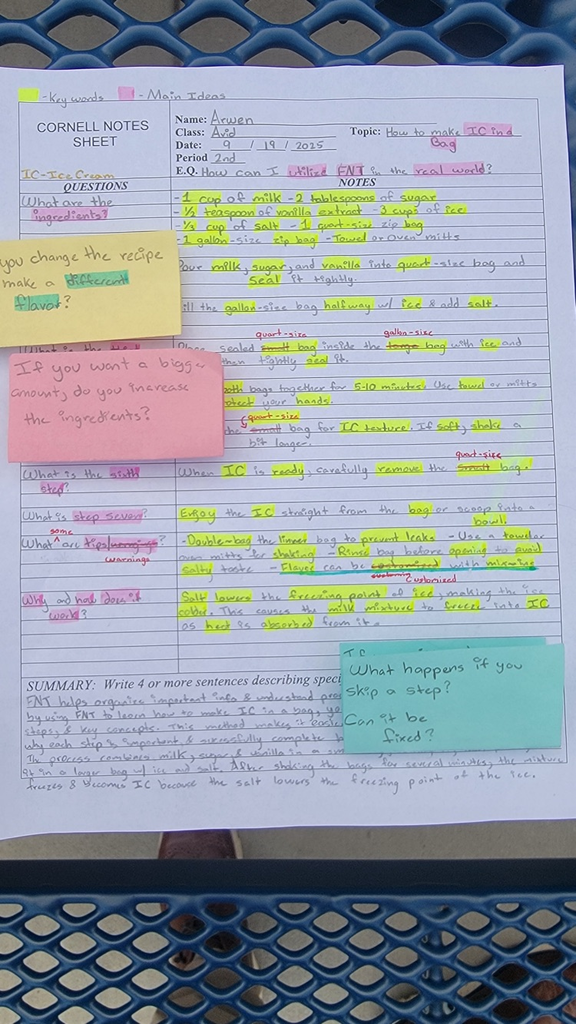 - Key words - Main Ideas
CORNELL NOTES
SHEET
IC-Ice Cream
Name: Arwen
Class: Avid Topic: How to make IC in a
Bag
Date: 9 / 19 / 2025
Period 2nd
E.Q. How can I utilize FNT in the real world?
QUESTIONS NOTES
What are the
ingredients?
-1 cup of milk -2 tablespoons of sugar
-½ teaspoon of vanilla extract -3 cups of ice
-⅓ cup of salt -1 quart-size zip bag
-1 gallon-size zip bag -Towel or Oven mitts
you change the recipe
make a different
flavor?
Pour milk, sugar, and vanilla into quart-size bag and
seal it tightly.
ill the gallon-size bag halfway w/ ice & add salt.
quart-size gallon-size
sealed small bag inside the large bag with ice and
then tightly seal it.
If you want a bigger
amount, do you increase
the ingredients?
both bags together for 5-10 minutes. Use towel or mitts
otect your hands.
quart-size
the small bag for IC texture. If soft, shake a
bit longer.
What is the sixth
step?
quart-size
When IC is ready, carefully remove the small bag.
What is step seven?
Enjoy the IC straight from the bag or scoop into a
bowl.
some
What are tips/ ?
warnings
-Double-bag the inner bag to prevent leaks -Use a towel or
oven mitts for shaking -Rinse bag before opening to avoid
salty taste -Flavor can be customized with
Customized
Why and how does it
work?
Salt lowers the freezing point of ice, making the ice
colder. This causes the milk mixture to freeze into IC
as heat is absorbed from it.
What happens if you
skip a step?
Can it be
fixed?
SUMMARY: Write 4 or more sentences describing speci
FNT helps organize important info & understand
by using FNT to learn how to make IC in a bag, yo
steps, & key concepts. This method makes it easie
why each step is important, & sucessfully complete
The process combines milk, sugar, & vanilla in a sm
it in a larger bag w/ ice and salt. After shaking the bags for several minutes, the mixture
freezes & becomes IC because the salt lowers the freezing point of the ice.